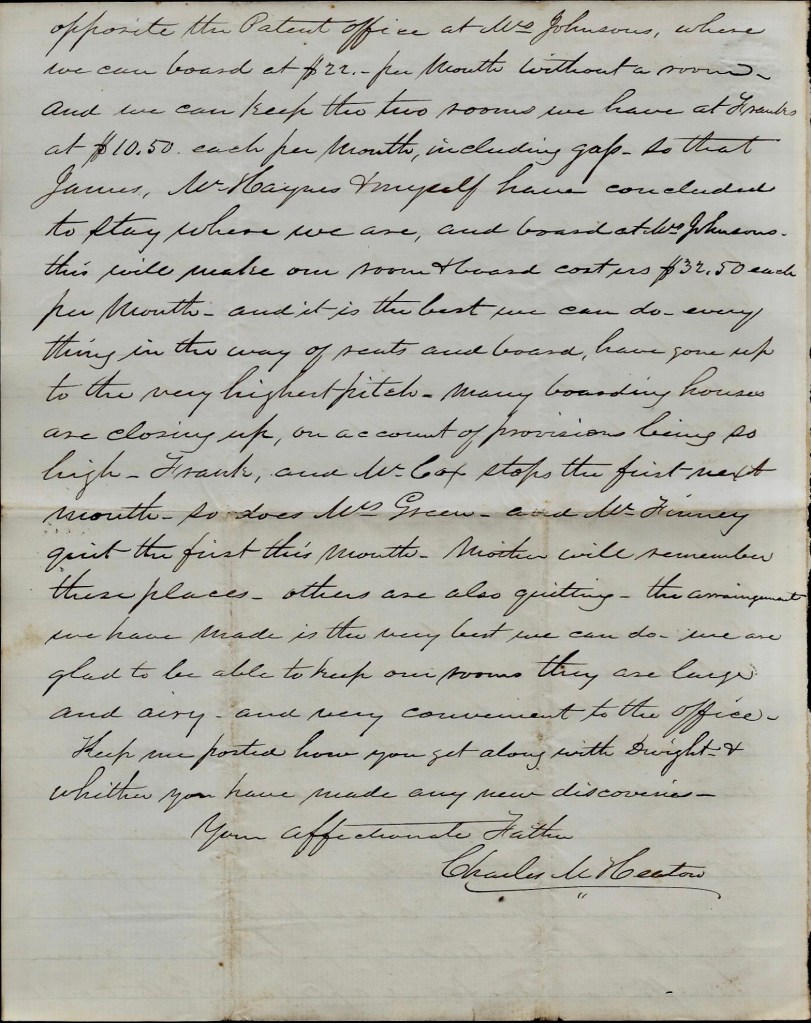 opposite the Patent office at Mrs Johnsons, where
we can board at $22.- per Month without a room -
and we can keep the two rooms we have at Franks
at $10.50 each per Month, including gass - so that
James, Mr Haynes & myself have concluded
to stay where we are, and board at Mrs Johnsons -
this will make our room & board cost us $32.50 each
per Month - and it is the best we can do - every
thing in the way of rents and board, have gone up
to the very highest pitch - Many boarding houses
are closing up, on account of provisions being so
high - Frank, and Mr Cox stops the first next
month - so does Mrs Green - and Mr Finney
quit the first this Month - Mother will remember
these places - others are also quitting - the arraingement
we have made is the very best we can do - we are
glad to be able to keep our rooms they are large
and airy - and very convenient to the office -
Keep me posted how you get along with Dwight - &
whither you have made any new discoveries -
Your affectionate Father
Charles M Heaton